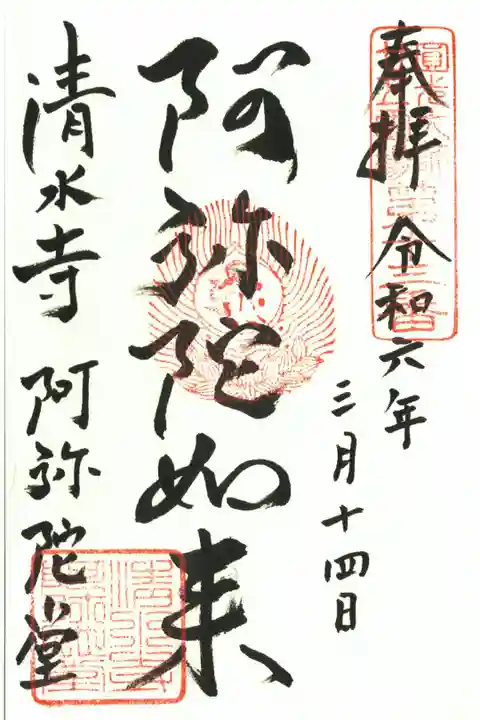 奉拝
令和六年
三月十四日
阿弥陀如来
清水寺 阿弥陀堂